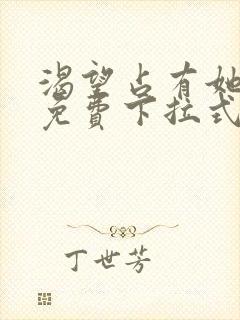 渴望占有她
免費下拉式
丁世芳